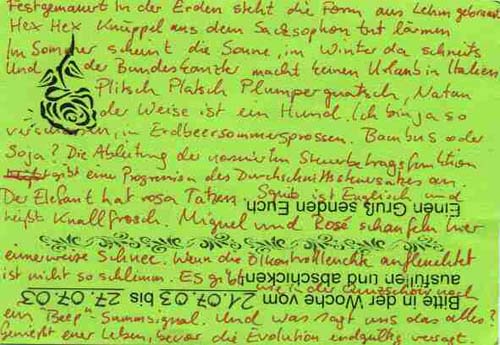 Festgemauert in der Erden steht die Form aus Lehm gebrannt
Hex Hex Knüppel aus dem Sacksophon tut lärmen
Im Sommer scheint die Sonne, im Winter da schneits
Und der Bundeskanzler macht keinen Urlaub in Italien
Plitsch Platsch Plumperquatsch, Natan
der Weise ist ein Hund. Ich bin ja so
verschossen, in Erdbeersommersprossen. Bambus oder
Soja? Die Ableitung der normierten Steuerbetragsfunktion
gibt eine Progression des Durchschnittssteuersatzes an.
Der Elefant hat rosa Tatzen. Squib ist Englisch und
Einen Gruß senden Euch,
heißt Knallfrosch. Miguel und Rosé schaufeln hier
eimerweise Schnee. Wenn die Ölkontrolleuchte aufleuchtet
ist nicht so schlimm. Es gibt
ausfüllen und abschicken
wie in der Gunztschow noch
Bitte in der Woche vom 21.07.03 bis 27.07.03
ein "Beep" Summsignal. Und was sagt uns das alles?
Genießt euer Leben, bevor die Evolution endgültig versagt.